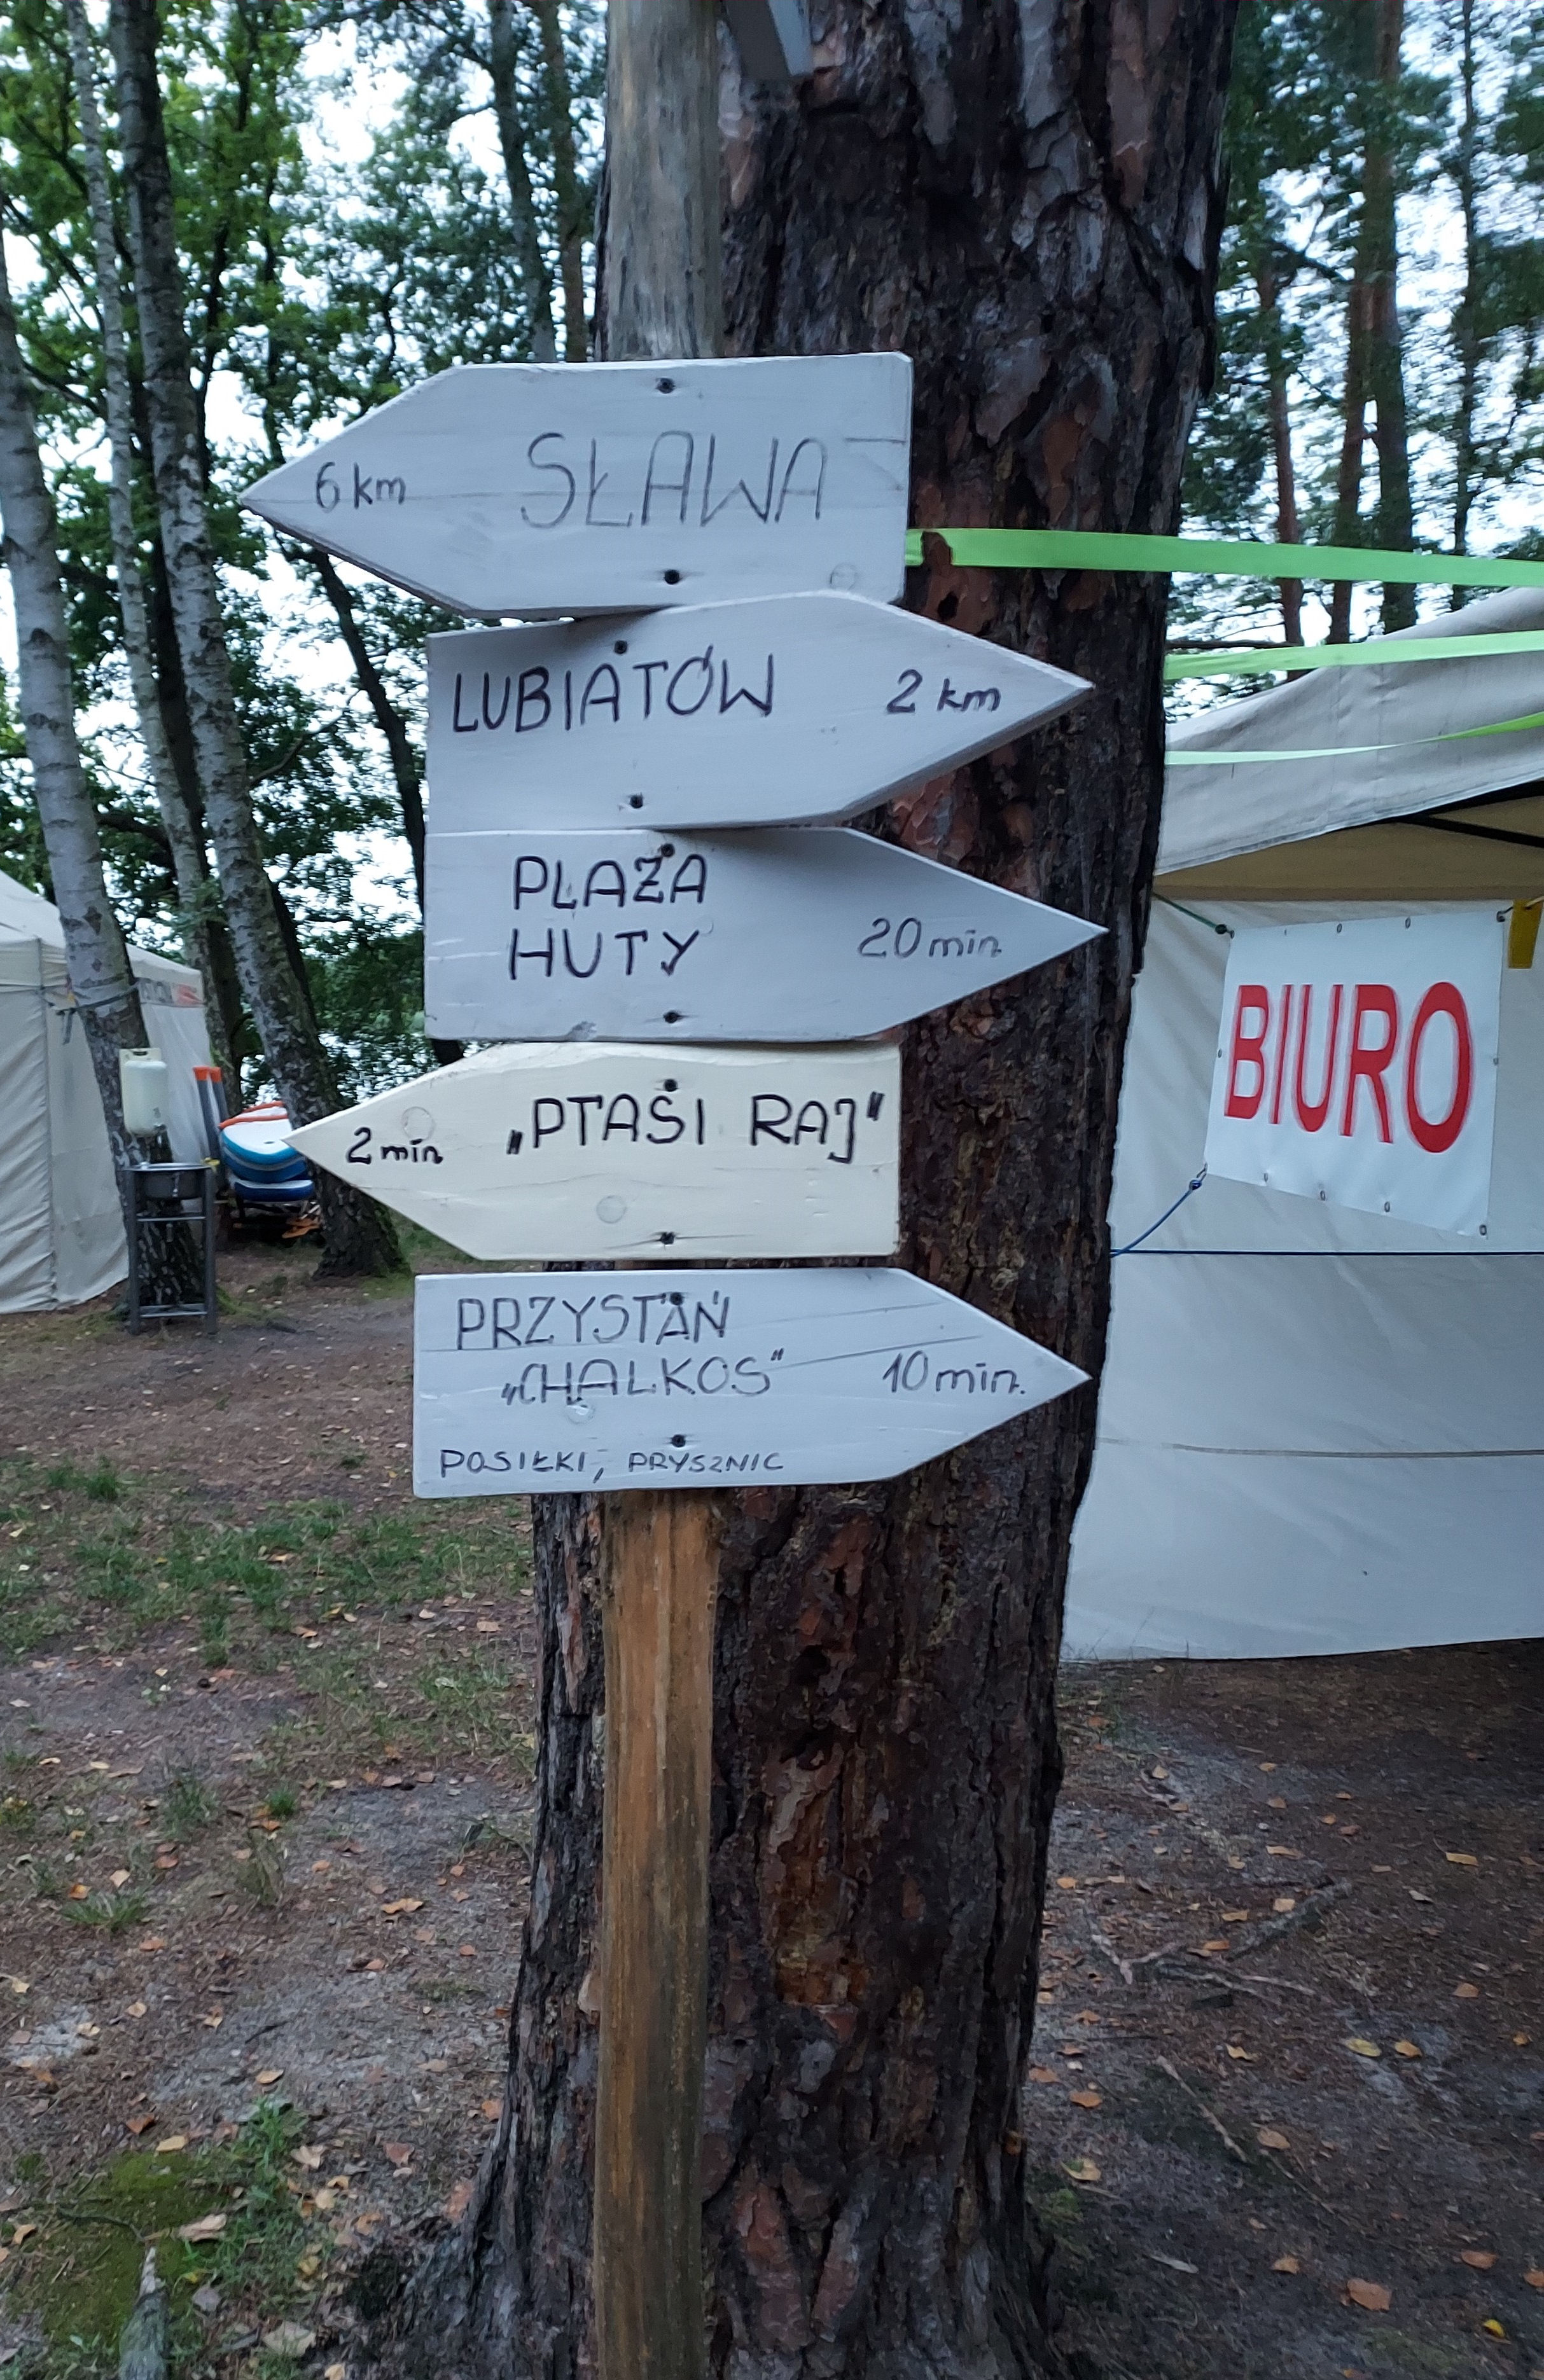 6 km SŁAWA
LUBIATÓW 2 km
PLAŻA
HUTY 20 min.
2 min. „PTASI RAJ"
PRZYSTAŃ
„CHALKOS" 10 min.
POSIŁKI, PRYSZNIC
BIURO